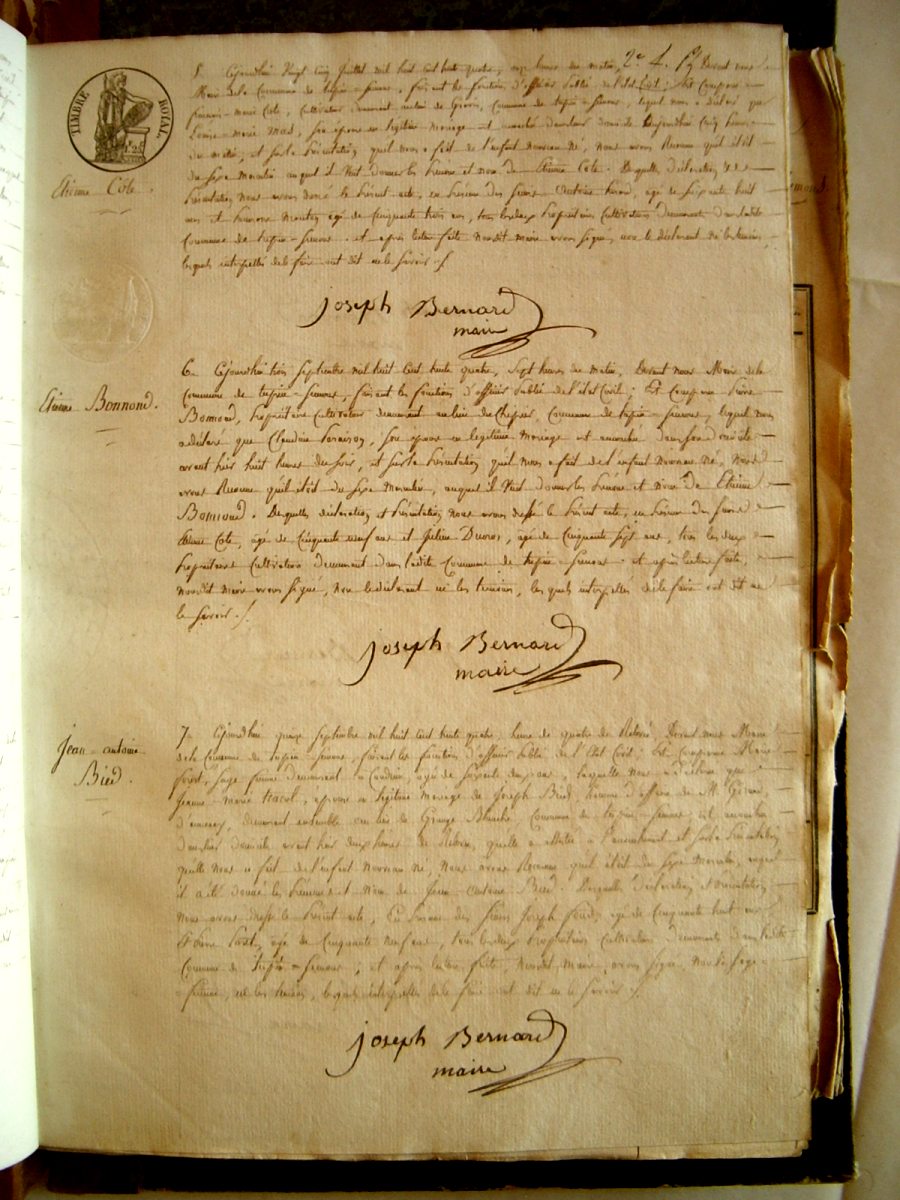 TIMBRE ROYAL
2e f.
Etienne Cote.
5. Cejourdhui Vingt Cinq Juillet mil huit cent trente quatre, onze heures du matin, Devant nous
Maire de la Commune de tupin-Semons, faisant les fonctions d'officier public de l'état Civil; Est Comparu
marie Cote, Cultivateur demeurant au lieu de Commune de tupin-Semons, lequel nous a déclaré que
Louise marie son épouse en légitime mariage est accouchée dans leur domicile Cejourdhui Cinq heures
du matin, et sur la présentation qu'il nous a fait de l'enfant nouveau né, nous avons Reconnu qu'il étoit
du Sexe Masculin auquel il Veut donner les prénoms et nom de Etienne Cote. Desquelles déclaration et
présentation nous avons dressé le présent acte, en présence des Sieurs agé de Soixante huit
ans et agé de Cinquante trois ans, tous les deux propriétaires Cultivateurs demeurants dans ladite
Commune de tupin-Semons. et après lecture faite Nousdit maire avons Signé, non le déclarant ni les témoins,
lesquels interpellés de le faire ont dit ne le Savoir./.
Joseph Bernard
maire
Etienne Bonnond.
6. Cejourdhui trois Septembre mil huit Cent trente quatre, Sept heures du Matin, Devant nous Maire de la
Commune de tupin-Semons, faisant les fonctions d'officier Public de l'état Civil; Est Comparu Pierre
Bonnond, Propriétaire Cultivateur demeurant au lieu du Commune de tupin-Semons, lequel nous
a déclaré que Claudine Son épouse en légitime Mariage est accouchée dans Son Domicile
avant hier huit heures du Soir, et sur la présentation qu'il nous a fait de l'enfant nouveau né, Nous
avons Reconnu qu'il étoit du Sexe Masculin, auquel il Veut donner les Prénoms et Nom de Etienne
Bonnond. Desquelles déclaration et présentation nous avons dressé le présent acte, en présence des Sieurs
Etienne Cote, agé de Cinquante neuf ans et Julien agé de Cinquante Sept ans, tous les deux
Propriétaires Cultivateurs demeurant dans ladite Commune de tupin-Semons. et après lecture faite,
nousdit maire avons Signé, non le déclarant ni les témoins, lesquels interpellés de le faire ont dit ne
le Savoir./.
Joseph Bernard
maire
Jean-antoine
Bied.
7. Cejourdhui quinze Septembre mil huit Cent trente quatre, heure de quatre de Relevée, Devant nous Maire
de la Commune de tupin-Semons, faisant les fonctions d'officier Public de l'Etat Civil; Est Comparue Marie
Sage femme demeurant à Condrieu, agée de Soixante ans, laquelle nous a déclaré que
Jeanne Marie épouse en légitime Mariage de Joseph Bied, homme d'affaire de M.
demeurant ensemble au lieu de Grange Blanche, Commune de tupin-Semons est accouchée
domicile avant hier deux heures de Relevée, quelle a assistée à l'accouchement et sur la Présentation
qu'elle Nous a fait de l'enfant Nouveau né, Nous avons Reconnu qu'il étoit du Sexe Masculin, auquel
il a été donné les Prénoms et Nom de Jean Antoine Bied. Desquelles déclaration et Présentation
nous avons dressé le Présent acte, En Présence des Sieurs Joseph agé de Cinquante huit ans
Et Pierre agé de Cinquante Neuf ans, tous les deux Propriétaires Cultivateurs demeurants dans ladite
Commune de tupin-Semons; et après lecture faite, Nousdit Maire, avons Signé, Non la Sage-
femme, ni les témoins, lesquels interpellés de le faire ont dit ne le Savoir./.
Joseph Bernard
maire